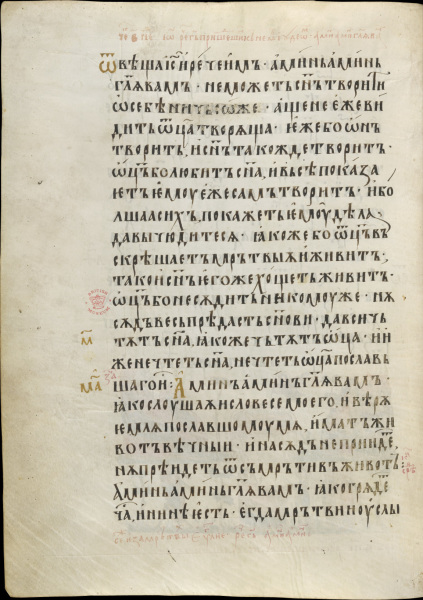 ѿвѣща і҃с и҃ рече им · аминь аминь
гл҃ѧ вамь · не можеть сн҃ь творити
ѡ себѣ ничьсоже · аще не еже ви
дить ѿц҃а творѧща · еже бо ѡнь
творить, и сн҃ь такождє творит ·
ѿц҃ь бо любить сн҃а, и вьсѣ показа
еть емоу еже самь творить · и бо
лша сихь, покажеть емоу дѣла,
да вы чюдитесѧ · ꙗкоже бо ѿц҃ь вь
скрѣшаеть мрьтвыѧ и живить ·
тако и сн҃ь егоже хощеть живить ·
ѿц҃ь бо не сѫдить никомоуже · нѫ
сѫдь весь прѣдасть сн҃ови · да вси чь
тѫть сн҃а, ꙗкоже чьтѫть ѿц҃а · и
же не чтеть сн҃а, не чтеть ѿц҃а пославь
шаго и҃ · Аминь аминь гл҃ѧ вамь ·
ꙗко слоушаѧи словесе моего, и вѣрѫ
емлѧ пославшомоу мѧ, имать жи
вота вѣчныи · и на сѫдь не прииде,
нѫ прѣидеть ѿ сьмрьти вь животь ·
Аминь аминь гл҃ѧ вамь · ꙗко грѧде
ча҃, и нн҃ѣ есть · егда мрьтвии оуслы